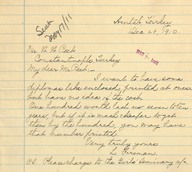 Sent
May 17/11
Aintab, Turkey
Dec 28, 1910.
Mr. W. W. Peet
Constantinople, Turkey
My dear Mr. Peet:-
I want to have some
diplomas like enclosed, printed at once
but have no idea of the cost.
One hundred would last us over ten
years, but if it is much cheaper to get
them by the hundred, you may have
that number printed.
Very truly yours
P.S. Please charge to the Girls Seminary a/c